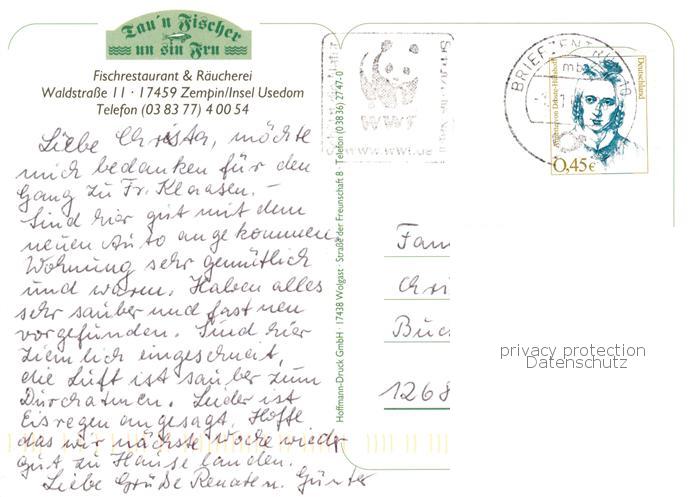 Tau'n Fischer
un sin Fru
Fischrestaurant & Räucherei
Waldstraße 11 · 17459 Zempin/Insel Usedom
Telefon (03 83 77) 4 00 54
Liebe Christa, möchte
mich bedanken für den
Gang zu Fr. Klaasen. –
Sind hier gut mit dem
neuen Auto angekommen.
Wohnung sehr gemütlich
und warm. Haben alles
sehr sauber und fast neu
vorgefunden. Sind hier
ziemlich eingeschneit,
die Luft ist sauber zum
Durchatmen. Leider ist
Eisregen angesagt. Hoffe
das wir nächste Woche wieder
gut zu Hause landen.
Liebe Grüße Renate u. Günter
Hoffmann-Druck GmbH · 17438 Wolgast · Straße der Freundschaft 8 · Telefon (0 38 36) 27 47-0
WWF
www.wwf.de
BRIEFZENTRUM
mb
Deutschland
Annette von Droste-Hülshoff
0,45€
Fam
Chri
Buc
1268
privacy protection
Datenschutz